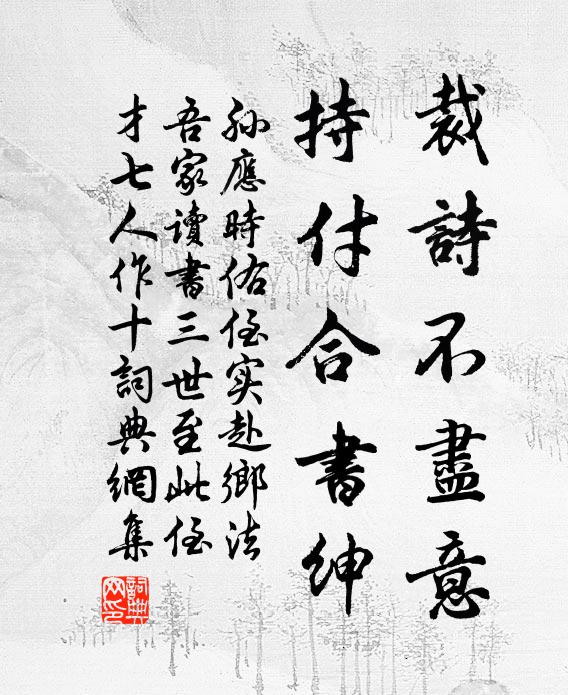 裁詩不盡意
持付合書紳
孫應時佑侄实赴鄉法
吾家讀書三世至此侄
才七人作十詞典網集
詞典网印